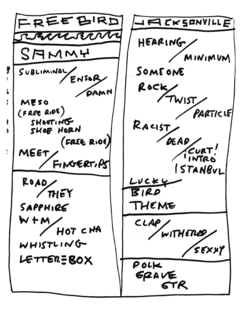 FREE BIRD
SAMMY
SUBLIMINAL/
ENSOR/
DAMN
MESO
(FREE RIDE)
SHOOTING
SHOE HORN
(FREE RIDE)
MEET/
FINGERTIPS
ROAD/
THEY
SAPPHIRE
W+M/
HOT CHA
WHISTLING
LETTERBOX
JACKSONVILLE
HEARING/
MINIMUM
SOMEONE
ROCK/
TWIST/
PARTICLE
RACIST/
DEAD/
"CURT" INTRO
ISTANBUL
LUCKY
BIRD
THEME
CLAP/
WITHERED/
SEXXY
POLK
GRAVE
GTR